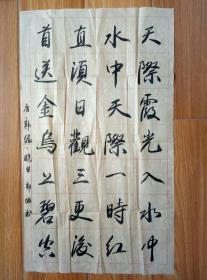 天際霞光入水中
水中天際一時紅
直須日觀三更後
首送金烏上碧空
唐韓偓·曉日